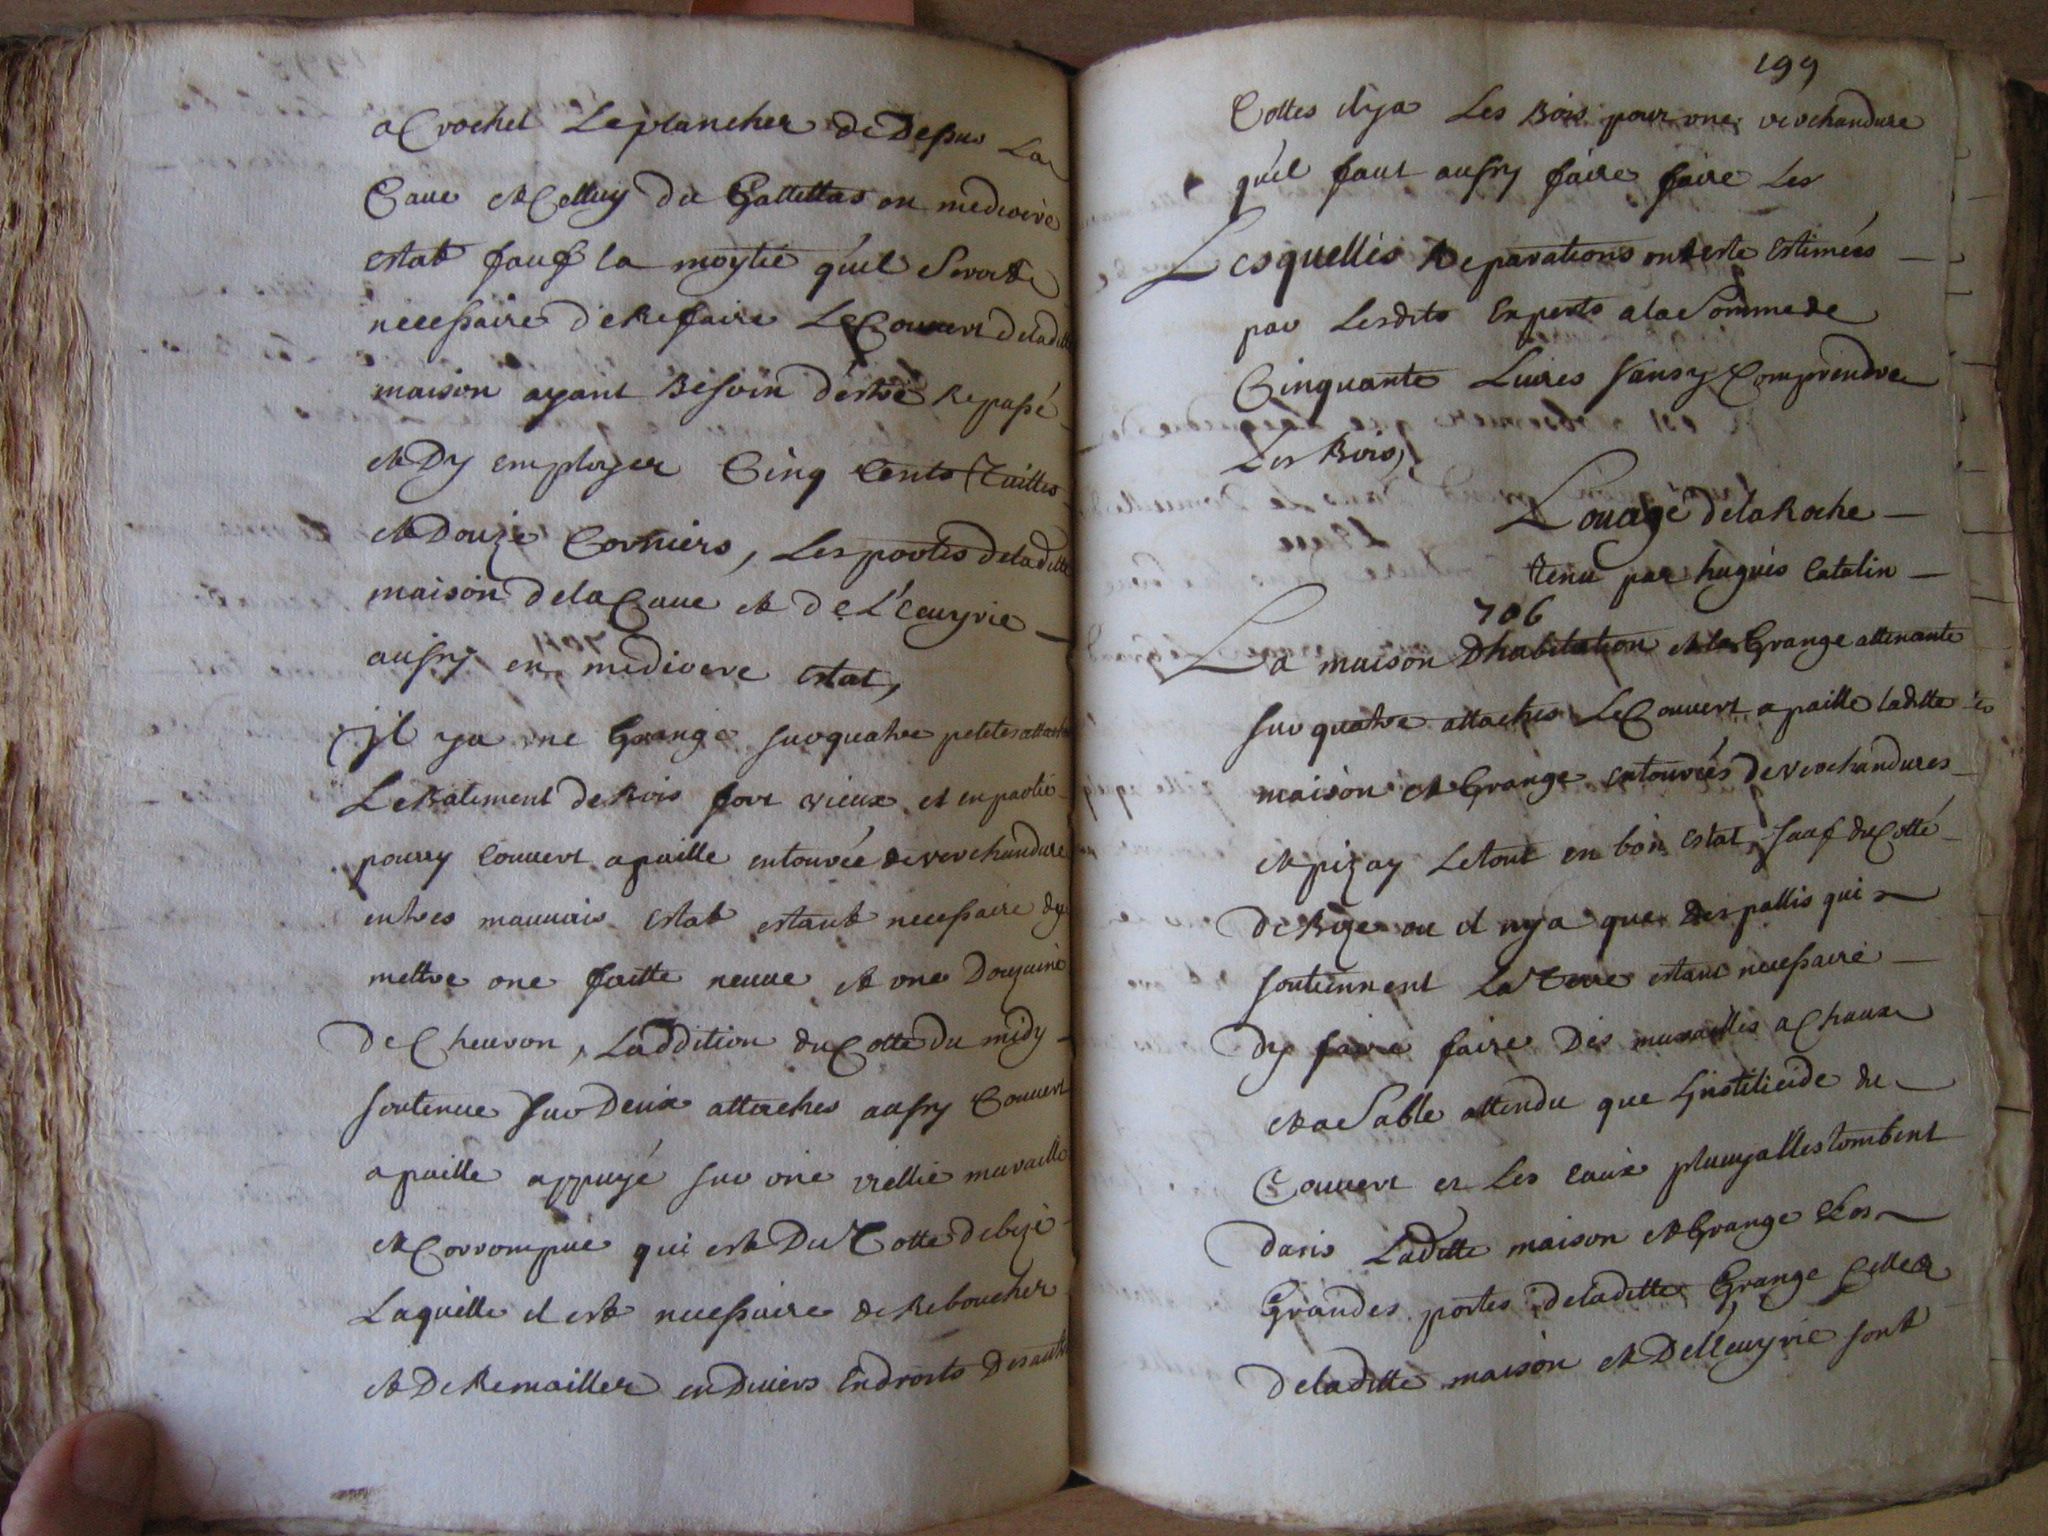 a Crochet Le plancher de Dessus La
Cave & Celluy du Gallettas en mediocre
estat sauf la moytié qu'il Seroit
necessaire de Refaire Le Couvert deladitte
maison ayant Besoin d'estre Repassé
& Dy employer Cinq Cents Tuilles
& Douze Corniers, Les portes deladitte
maison dela Cave & de L'Ecuyrie
aussy en mediocre estat,
Jl ya une Grange sur quatre petites attaches
Le Batiment de Bois fort vieux et en partie
pourry Couvert a paille entourée de verchandure
en tres mauvais estat estant necessaire dy
mettre une faitte neuve & une Douzaine
de Chevron, Laddition du Cotté du midy
soutenue sur Deux attaches aussy Couvert
a paille appuyé sur une vieillie muraille
& Corrompue qui est Du Cotté de bize
Laquelle il est necessaire de Reboucher
& De Remailler en Divers Endroits Des autres
199
Cottes ilya Les Bois pour une verchandure
qu'il faut aussy faire faire Les
Lesquelles Reparations ont esté Estimées
par Lesdits Experts a la Somme de
Cinquante Livres sans y Comprendre
Les Bois,
Louage dela Roche
tenu par hugues Catalin
706
La maison Dhabitation & la Grange attenante
sur quatre attaches Le Couvert a paille laditte
maison & Grange entourées de verchandures
& pizay Le tout en bon estat, sauf du Cotté
de Bize ou il nya que des pallis qui
soutiennent La Terre estant necessaire
dy faire faire Des murailles a Chaux
& a Sable attendu que Listilicide du
Couvert et Les Eaux pluvyalles tombent
dans Laditte maison & Grange & Les
Grandes portes deladitte Grange Celles
deladitte maison & Dellecuyrie sont